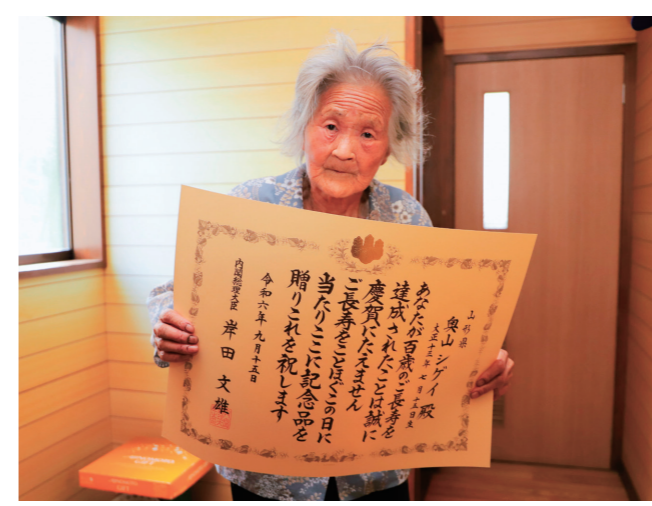 山形県
奥山シゲイ殿
大正十三年七月十五日生
あなたが百歳のご長寿を
達成されたことは誠に
慶賀にたえません
ご長寿をことほぐこの日に
当たりここに記念品を
贈りこれを祝します
令和六年九月十五日
内閣総理大臣 岸田文雄